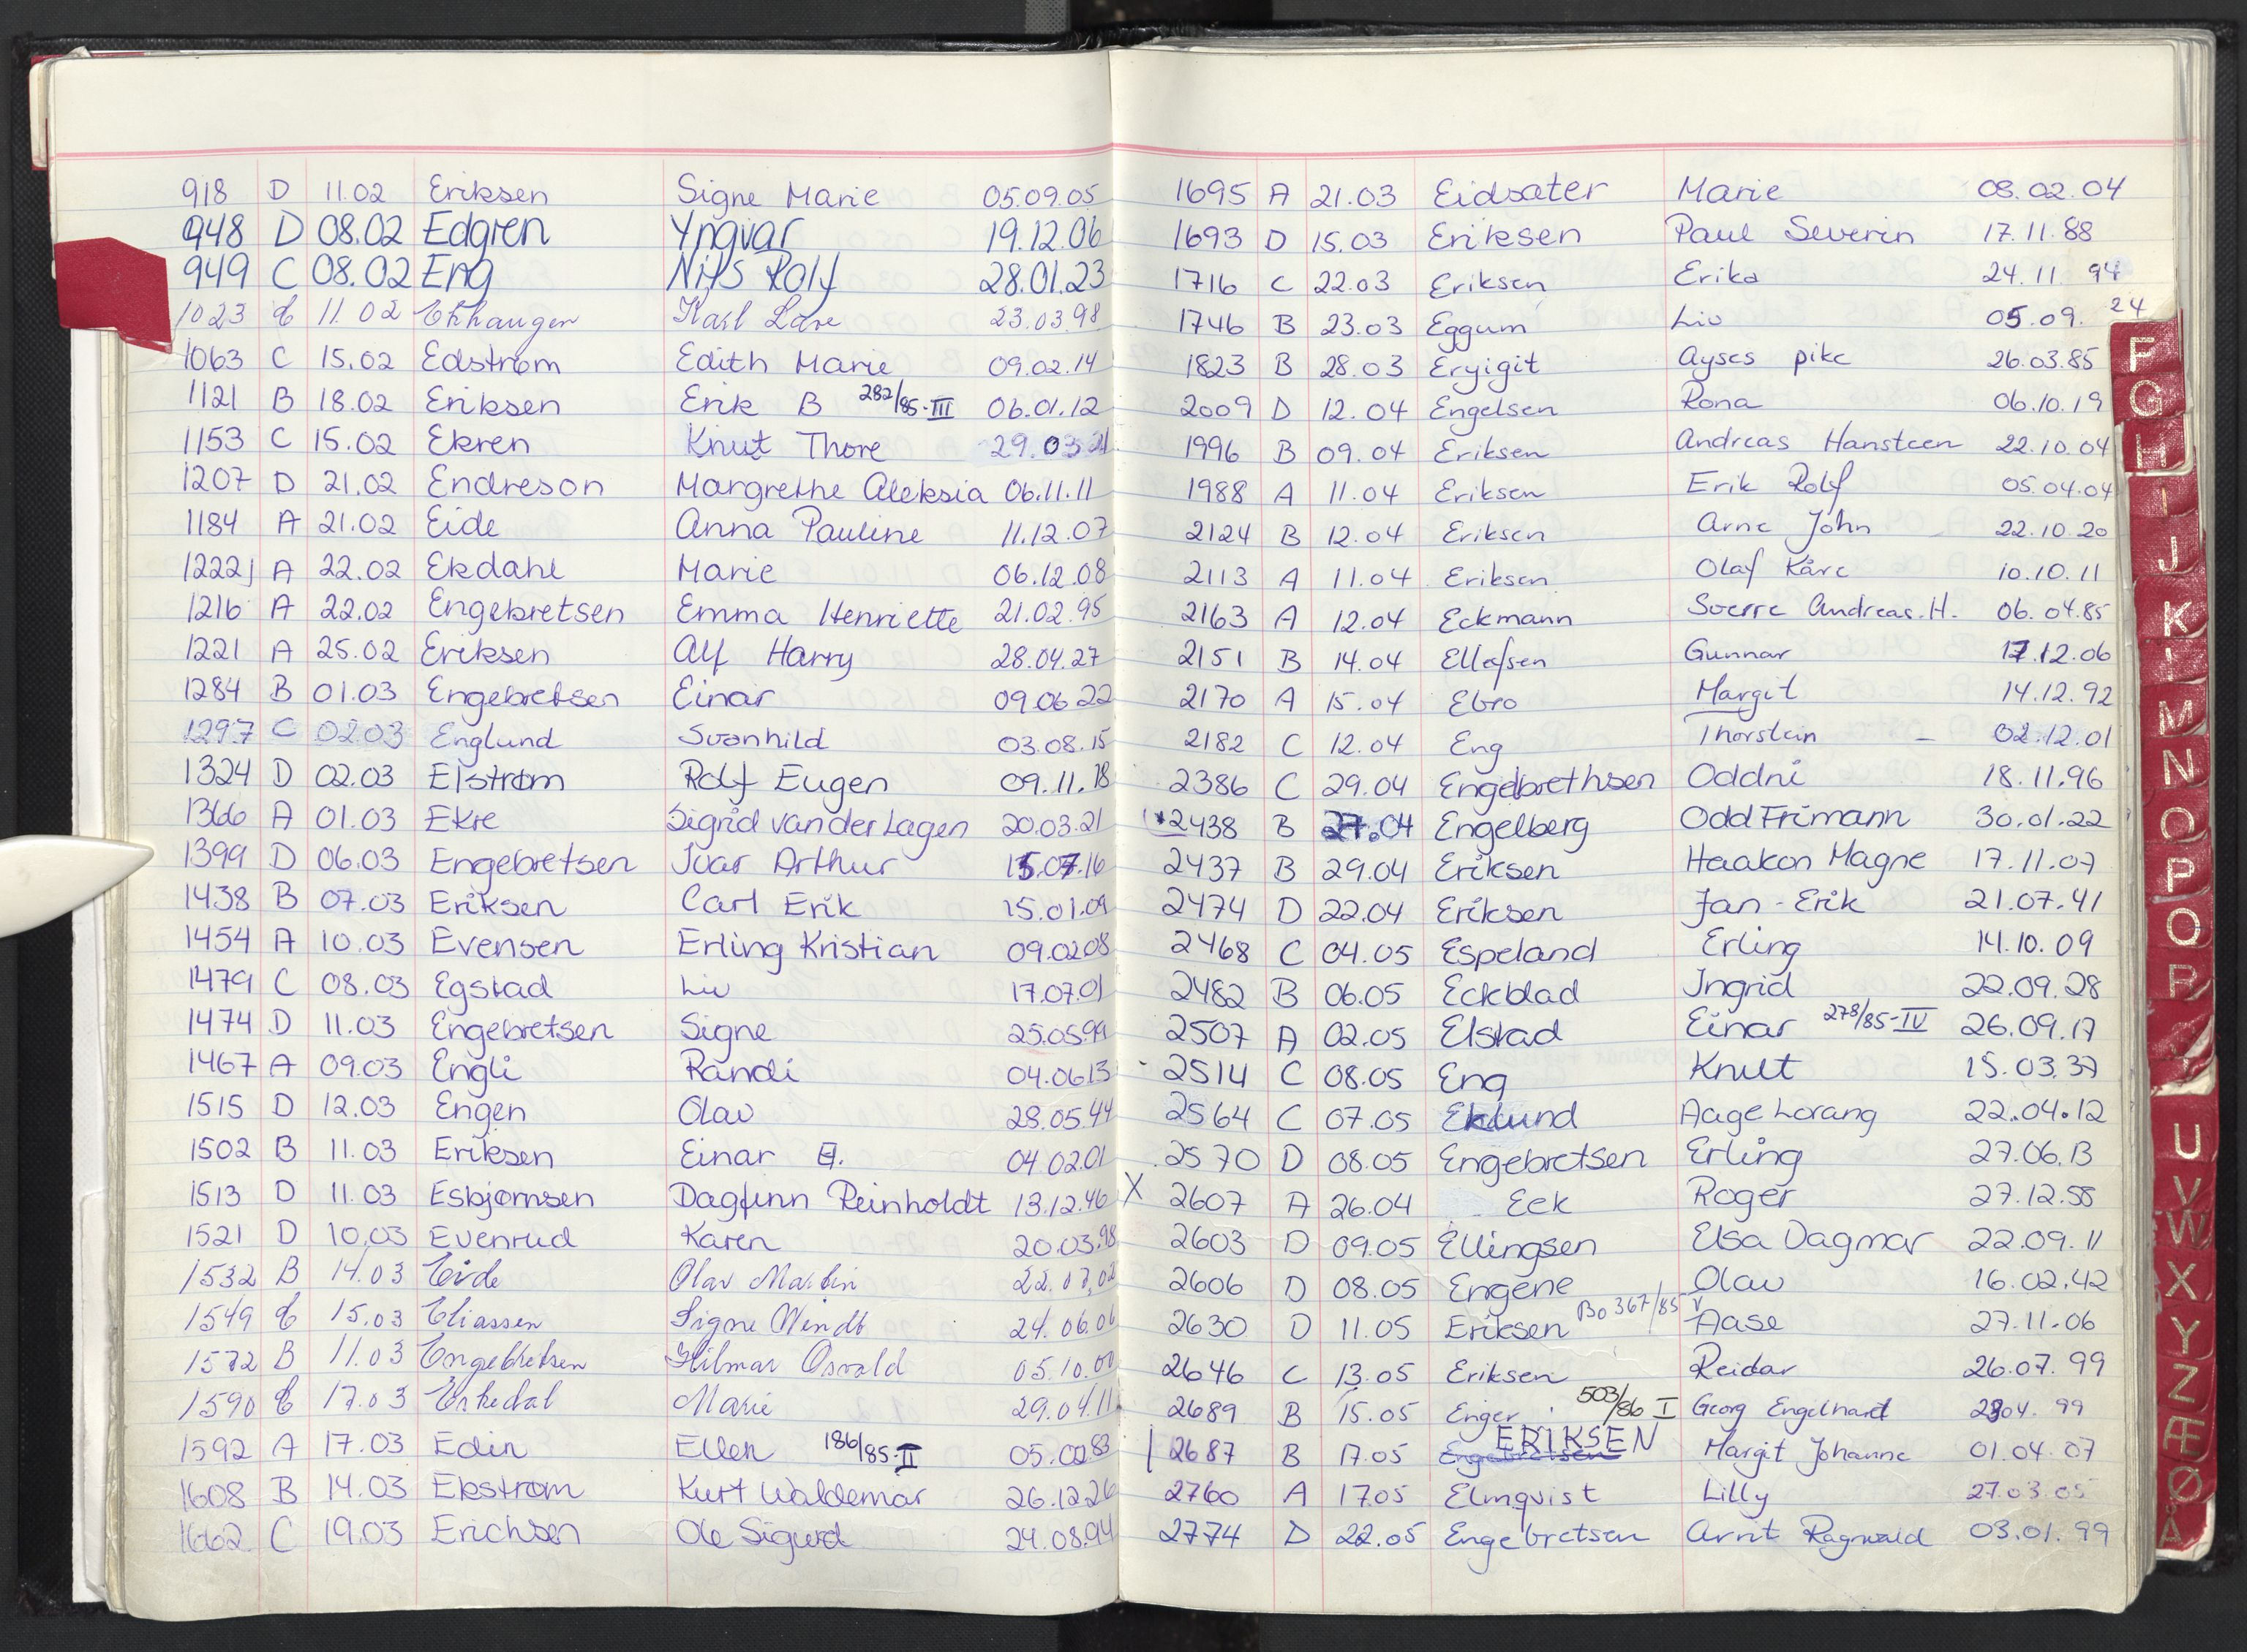 918 D 11.02 Eriksen Signe Marie 05.09.05
948 D 08.02 Edgren Yngvar 19.12.06
949 C 08.02 Eng Nils Rolf 28.01.23
1023 C 11.02 Ekhaugen Karl Lare 23.03.98
1063 C 15.02 Edstrøm Edith Marie 09.02.14
1121 B 18.02 Eriksen Erik B 282/85-III 06.01.12
1153 C 15.02 Ekren Knut Thore 29.03.21
1207 D 21.02 Endreson Margrethe Aleksia 06.11.11
1184 A 21.02 Eide Anna Pauline 11.12.07
1222 A 22.02 Ekdahl Marie 06.12.08
1216 A 22.02 Engebretsen Emma Henriette 21.02.95
1221 A 25.02 Eriksen Alf Harry 28.04.27
1284 B 01.03 Engebretsen Einar 09.06.22
1297 C 02.03 Englund Svanhild 03.08.15
1324 D 02.03 Elstrøm Rolf Eugen 09.11.18
1366 A 01.03 Ekre Sigrid van der Lagen 20.03.21
1399 D 06.03 Engebretsen Ivar Arthur 15.07.16
1438 B 07.03 Eriksen Carl Erik 15.01.09
1454 A 10.03 Evensen Erling Kristian 09.02.08
1479 C 08.03 Egstad Liv 17.07.01
1474 D 11.03 Engebretsen Signe 25.05.99
1467 A 09.03 Engli Randi 04.06.13
1515 D 12.03 Engen Olav 28.05.44
1502 B 11.03 Eriksen Einar E. 04.02.01
1513 D 11.03 Esbjørnsen Dagfinn Reinholdt 13.12.46
1521 D 10.03 Evenrud Karen 20.03.98
1532 B 14.03 Eide Olav Martin 22.07.02
1549 C 15.03 Eliassen Signe Windt 24.06.06
1572 B 11.03 Engebretsen Hilmar Osvald 05.10.00
1590 C 17.03 Eikedal Marie 29.04.11
1592 A 17.03 Edin Ellen 186/85-II 05.02.83
1608 B 14.03 Ekstrøm Kurt Waldemar 26.12.26
1662 C 19.03 Erichsen Ole Sigurd 24.08.94
1695 A 21.03 Eidsæter Marie 08.02.04
1693 D 15.03 Eriksen Paul Severin 17.11.88
1716 C 22.03 Eriksen Erika 24.11 94
1746 B 23.03 Eggum Liv 05.09. 24
1823 B 28.03 Eryigit Ayses pike 26.03.85
2009 D 12.04 Engelsen Rona 06.10.19
1996 B 09.04 Eriksen Andreas Hansteen 22.10.04
1988 A 11.04 Eriksen Erik Rolf 05.04.04
2124 B 12.04 Eriksen Arne John 22.10.20
2113 A 11.04 Eriksen Olaf Kåre 10.10.11
2163 A 12.04 Eckmann Sverre Andreas.H. 06.04.85
2151 B 14.04 Ellefsen Gunnar 17.12.06
2170 A 15.04 Ebro Margit 14.12.92
2182 C 12.04 Eng Thorstein 02.12.01
2386 C 29.04 Engebrethsen Oddni 18.11.96
2438 B 27.04 Engelberg Odd Frimann 30.01.22
2437 B 29.04 Eriksen Haakon Magne 17.11.07
2474 D 22.04 Eriksen Jan-Erik 21.07.41
2468 C 04.05 Espeland Erling 14.10.09
2482 B 06.05 Eckblad Ingrid 22.09.28
2507 A 02.05 Elstad Einar 278/85-IV 26.09.17
2514 C 08.05 Eng Knut 15.03.37
2564 C 07.05 Eklund Aage Lorang 22.04.12
2570 D 08.05 Engebretsen Erling 27.06.13
X 2607 A 26.04 Eek Roger 27.12.58
2603 D 09.05 Ellingsen Elsa Dagmar 22.09.11
2606 D 08.05 Engene Olav 16.02.42
2630 D 11.05 Eriksen Bo 367/85 V Aase 27.11.06
2646 C 13.05 Eriksen Reidar 26.07.99
2689 B 15.05 Enger 503/86 I Georg Engelhardt 04. 99
2687 B 17.05 Engebretsen ERIKSEN Margit Johanne 01.04.07
2760 A 17.05 Elmqvist Lilly 27.03.05
2774 D 22.05 Engebretsen Arnt Ragnvald 03.01.99
F
G
H
I
J
K
M
N
O
P
Q
R
U
V
W
X
Y
Z
Æ
Ø
Å